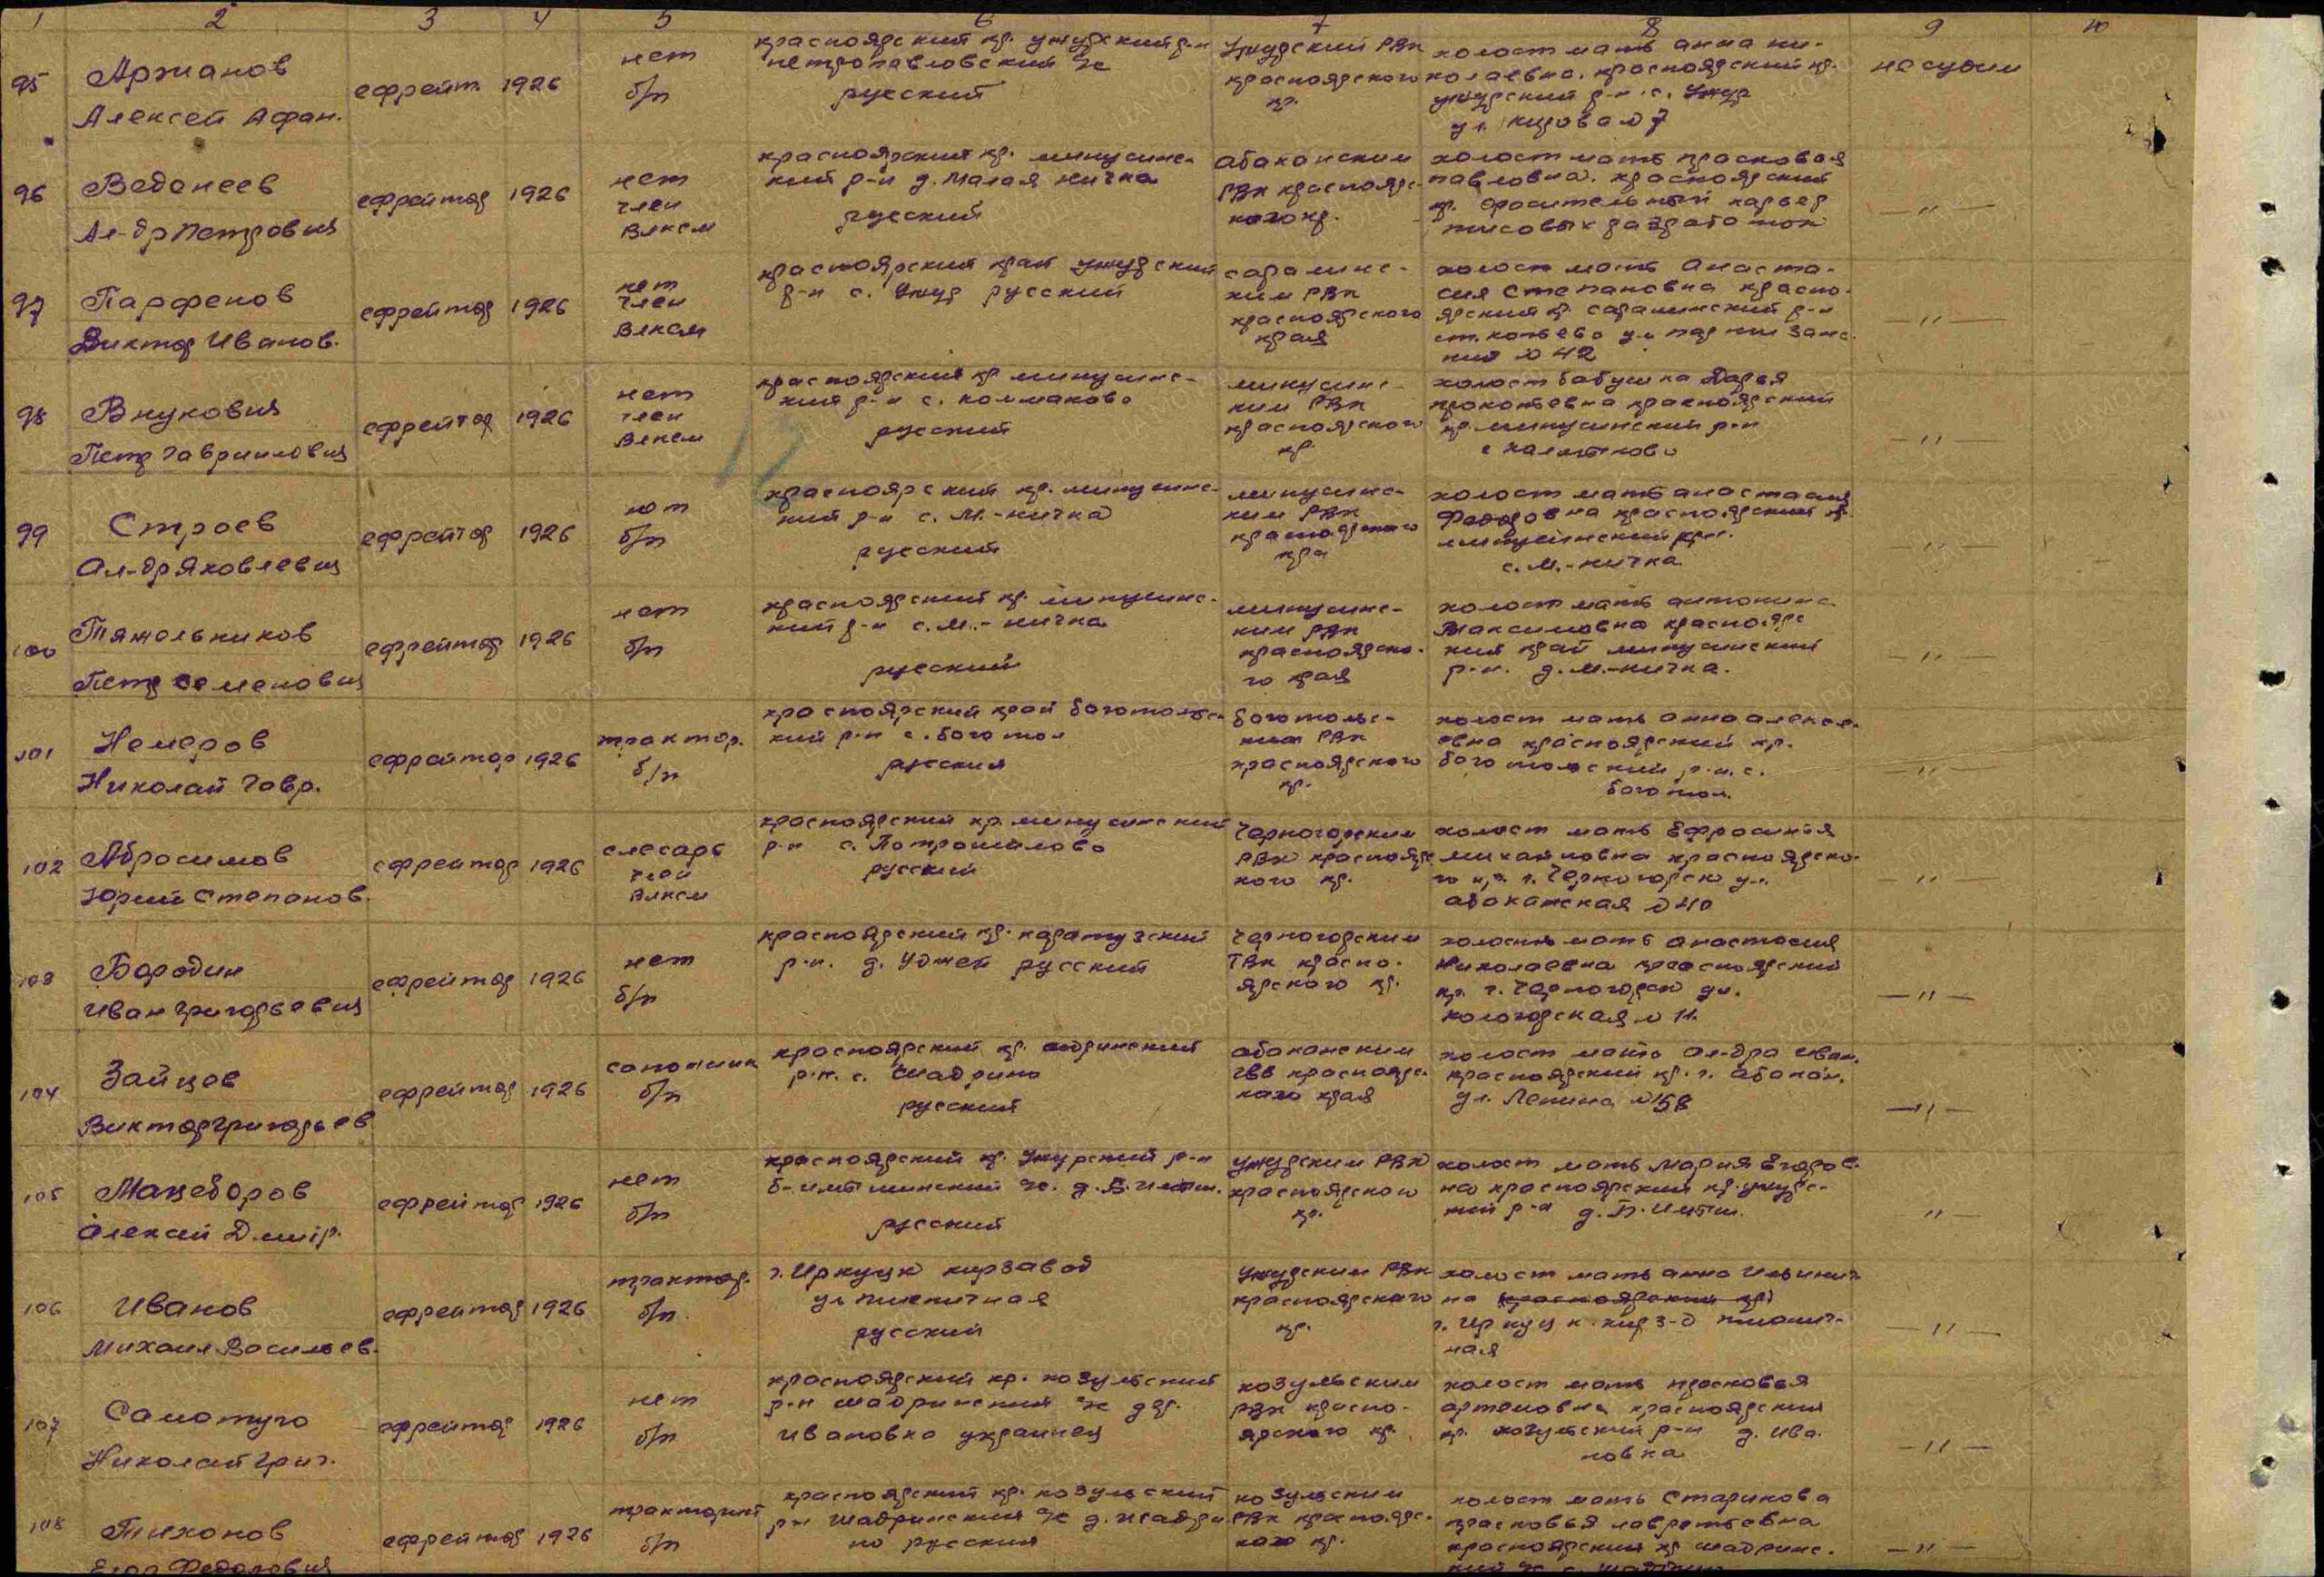 1 2 3 4 5 6 7 8 9 10
95 Аржанов Алексей Афан.
ефрейт. 1926
нет
б/п
красноярский кр. ужурский р-н
петропавловский
русский
Ужурский РВК
красноярского
кр.
холост мать анна ни-
колаевна. красноярский кр.
ужурский р-н с. Ужур
ул. кирова № 7
не судим
96 Веденеев
Ал-др Петрович
ефрейтор 1926
нет
член
Влксм
красноярский кр. минусинс-
кий р-н д. Малая ничка
русский
абаканским
РВК краснояр-
кого кр.
холост мать прасковья
павловна. красноярский
кр. оросительный карьер
разработок
— " —
97 Парфенов
Виктор Иванов.
ефрейтор 1926
нет
член
Влксм
красноярский край ужурский
р-н с. Ужур русский
саралинс-
ким РВК
красноярского
края
холост мать Анаста-
сия Степановна красно-
ярский кр. саралинский р-н
ст. копьево ул партизанс-
кий № 42
— " —
98 Внукович
Петр Гаврилович
ефрейтор 1926
нет
член
Влксм
красноярский кр минусинс-
кий р-н с. колмаково
русский
минусинс-
ким РВК
красноярского
кр.
холост бабушка Дарья
прокопьевна красноярский
кр. минусинский р-н
с
— " —
99 Строев
Ал-др Яковлевич
ефрейтор 1926
нет
б/п
красноярский кр. минусинс-
кий р-н с. М.-ничка
русский
минусинс-
ким РВК
красноярского
кра
холост мать анастасия
Федоровна красноярский кр.
минусинский р-н.
с. М.-ничка.
— " —
100 Тяжельников
Петр Семенович
ефрейтор 1926
нет
б/п
красноярский кр. минусинс-
кий р-н с. М.-ничка
русский
минусинс-
ким РВК
красноярско-
го края
холост мать антонина
Максимовна краснояр
кий край минусинский
р-н. д. М.-ничка.
— " —
101 Немеров
Николай Гавр.
ефрейтор 1926
трактор.
б/п
красноярский край боготольс-
кий р-н с. боготол
русский
боготольс-
ким РВК
красноярского
кр.
холост мать анна алексе-
евна красноярский кр.
боготольский р-н. с.
боготол.
— " —
102 Абросимов
Юрий Степанов.
ефрейтор 1926
слесарь
член
Влксм
красноярский кр. минусинский
р-н с. Потрошилово
русский
Черногорским
РВК краснояр
кого кр.
холост мать Ефросинья
михайловна красноярско-
го кр. г. Черногорск ул.
абаканская № 40
— " —
103 Бородин
Иван Григорьевич
ефрейтор 1926
нет
б/п
красноярский кр. каратузский
р-н. д. Уджей русский
Черногорским
ГВК красно-
ярского кр.
холост мать анастасия
Николаевна красноярский
кр. г. Черногорск ул.
№ 11.
— " —
104 Зайцев
Виктор Григорьев
ефрейтор 1926
сапожник
б/п
красноярский кр.
р-н. с. Шадрино
русский
абаканским
ГВК краснояр
кого края
холост мать Ал-дра Иван.
красноярский кр. г. Абакан.
ул. Ленина № 158
— " —
105 Мацеборов
Алексей Дмитр.
ефрейтор 1926
нет
б/п
красноярский кр. Ужурский р-н
русский
ужурским РВК
красноярского
кр.
холост мать Мария Егоров-
на красноярский кр. ужурс-
кий р-н
" —
106 Иванов
Михаил Васильев.
ефрейтор 1926
трактор.
б/п.
г. Иркуцк кирзавод
ул пшеничная
русский
Ужурским РВК
красноярского
кр.
холост мать анна Ильинич
на красноярский кр)
г. Иркуцк. кир з-д пшенич-
ная
— " —
107 Самотуго
Николай Григ.
ефрейтор 1926
нет
б/п
красноярский кр. козульский
р-н шадринский дер.
ивановка украинец
козульским
РВК красно-
ярского кр.
холост мать прасковья
артемовна красноярский
кр. козульский р-н д. ива-
новка
— " —
108 Тихонов
Егор Федорович
ефрейтор 1926
тракторист
б/п
красноярский кр. козульский
р-н шадринский д. шадри
но русский
козульским
РВК краснояр-
кого кр.
холост мать Старикова
прасковья лаврентьевна
красноярский кр шадринс-
— " —